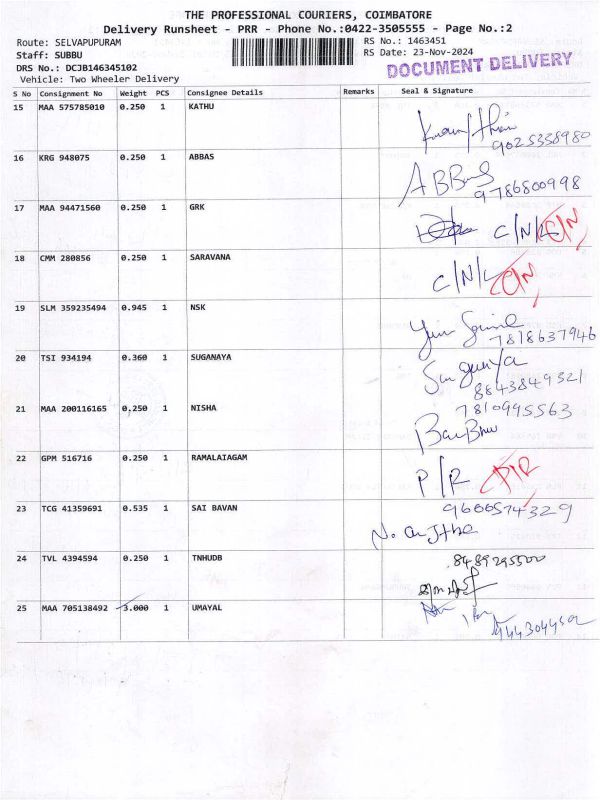 THE PROFESSIONAL COURIERS, COIMBATORE
Delivery Runsheet - PRR - Phone No.:0422-3505555 - Page No.:2
Route: SELVAPUPURAM RS No.: 1463451
Staff: SUBBU RS Date: 23-Nov-2024
DOCUMENT DELIVERY
DRS No.: DCJB146345102
Vehicle: Two Wheeler Delivery
S No Consignment No Weight PCS Consignee Details Remarks Seal & Signature
15 MAA 575785010 0.250 1 KATHU
9025338980
16 KRG 948075 0.250 1 ABBAS
ABBas
9786800998
17 MAA 94471560 0.250 1 GRK
C/N/L C/N
18 CMM 280856 0.250 1 SARAVANA
C/N/L C/N
19 SLM 359235494 0.945 1 NSK
7818637946
20 TSI 934194 0.360 1 SUGANAYA
SugunYa
8843849321
21 MAA 200116165 0.250 1 NISHA
7810995563
22 GPM 516716 0.250 1 RAMALAIAGAM
P/R P/R
23 TCG 41359691 0.535 1 SAI BAVAN
9600574329
24 TVL 4394594 0.250 1 TNHUDB
8489295500
25 MAA 705138492 3.000 1 UMAYAL